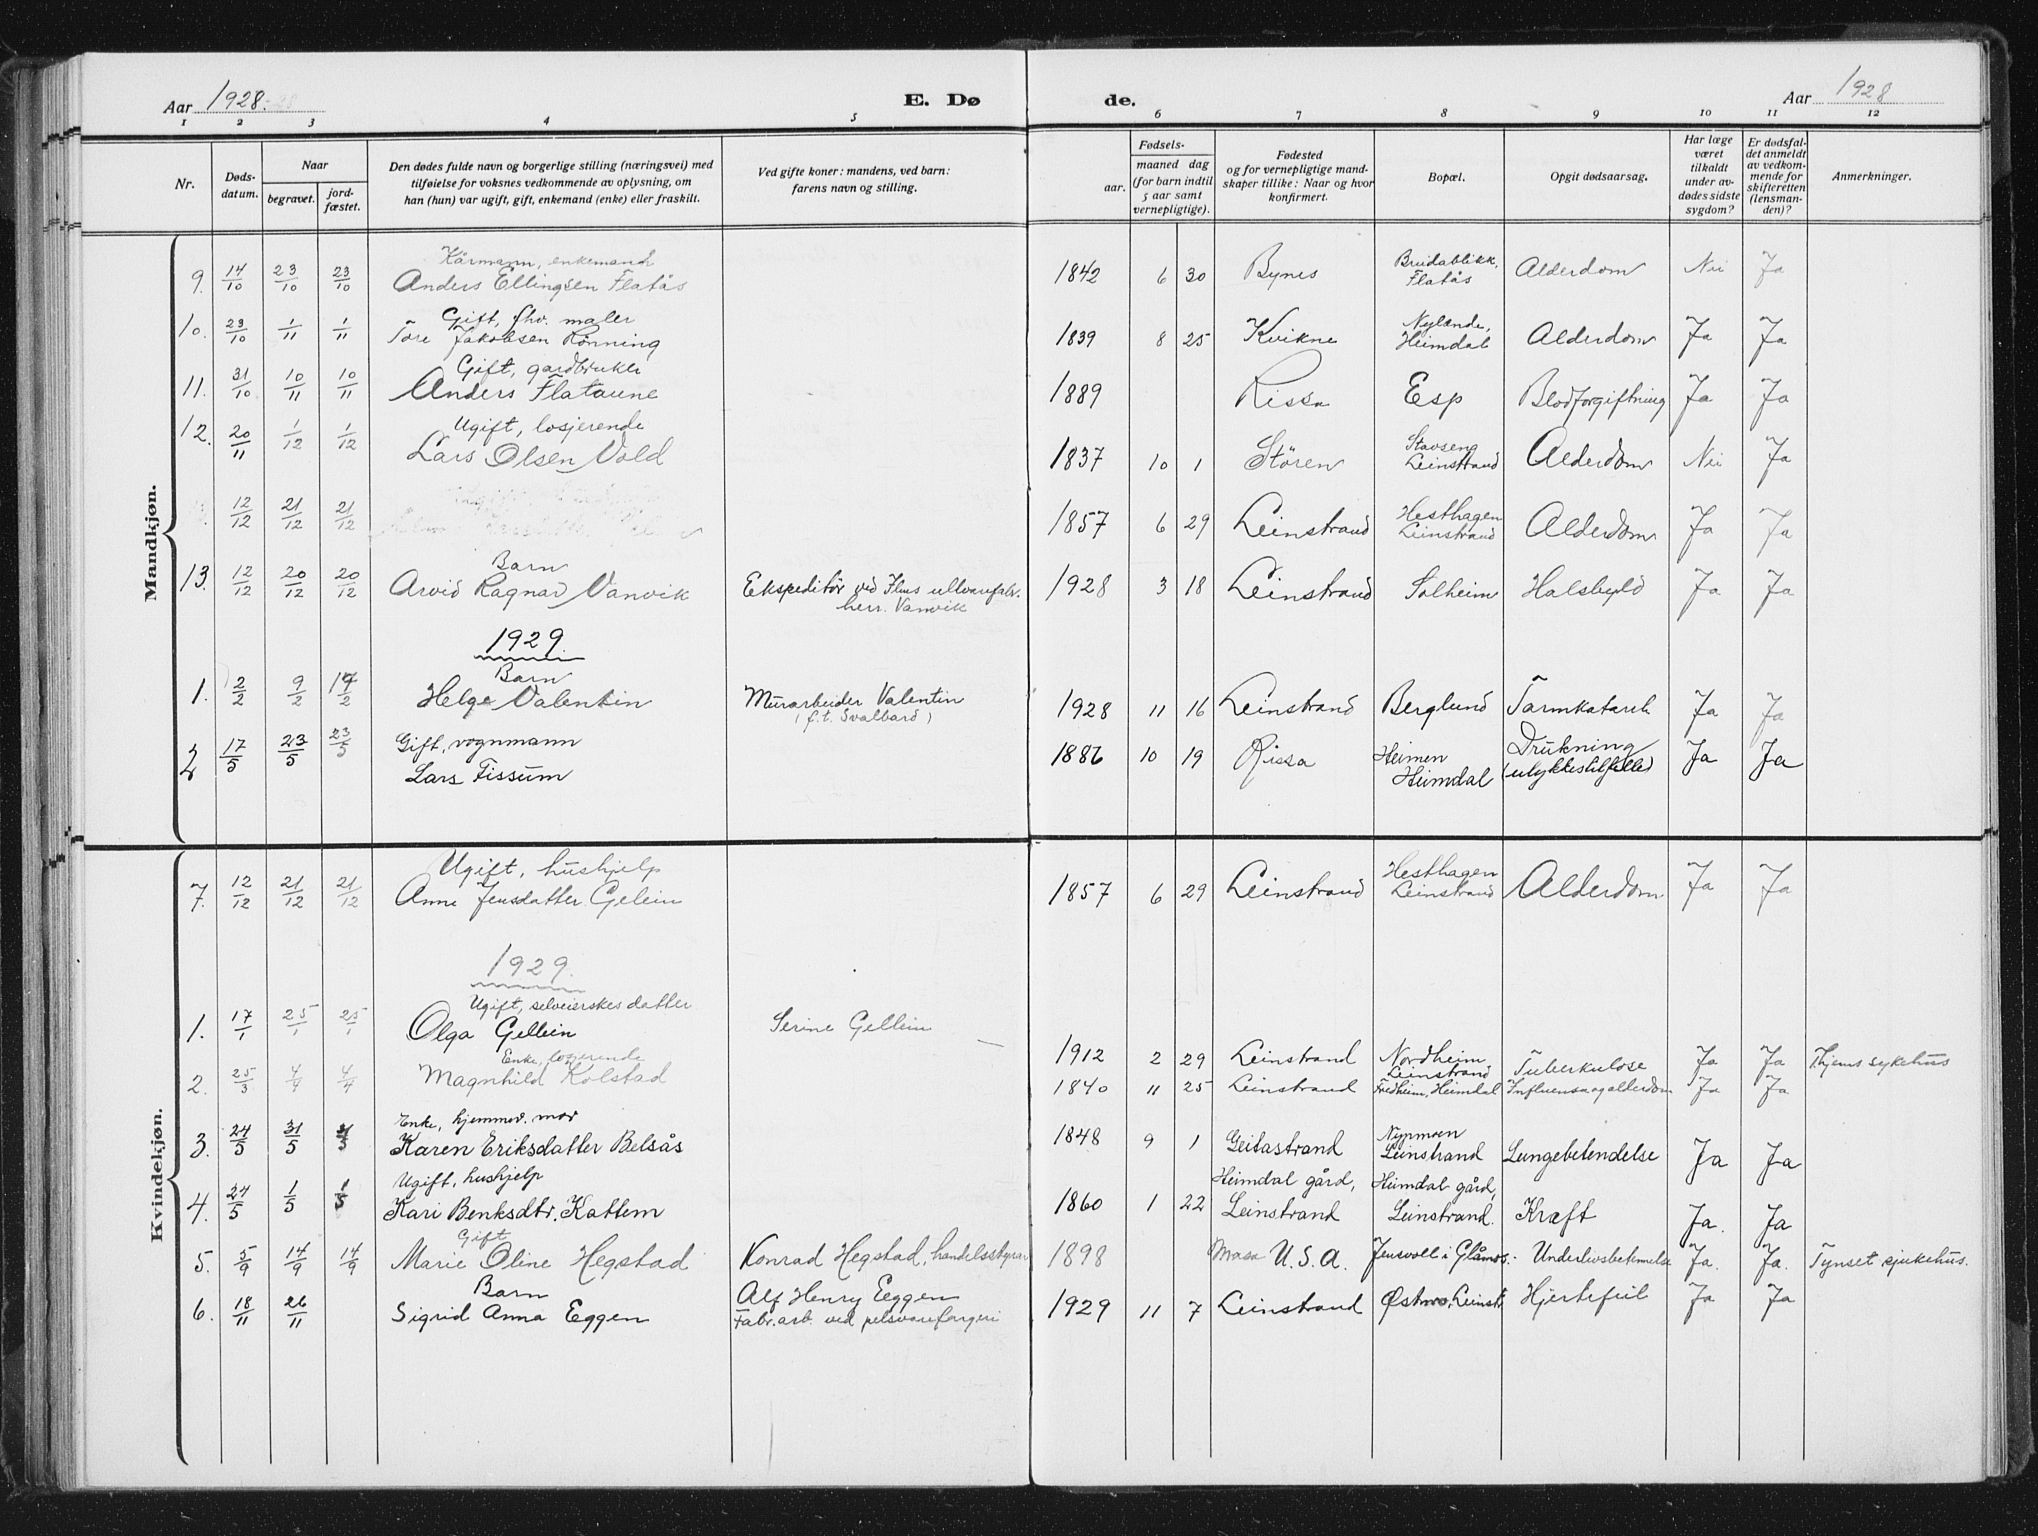 Aar 1928. E. Dø de. Aar 1928
1 2 3 4 5 6 7 8 9 10 11 12
Nr.
Døds-
datum.
Naar
begravet.
jord-
fæstet.
Den dødes fulde navn og borgerlige stilling (næringsvei) med
tilføielse for voksnes vedkommende av oplysning, om
han (hun) var ugift, gift, enkemand (enke) eller fraskilt.
Ved gifte koner: mandens, ved barn:
farens navn og stilling.
Fødsels-
aar.
maaned dag
(for barn indtil
5 aar samt
vernepligtige).
Fødested
og for vernepligtige mand-
skaper tillike: Naar og hvor
konfirmert.
Bopæl.
Opgit dødsaarsag.
Har læge
været
tilkaldt
under av-
dødes sidste
sygdom?
Er dødsfal-
det anmeldt
av vedkom-
mende for
skifteretten
(lensman-
den)?
Anmerkninger.
Mandkjøn.
Kårmann, enkemand
9. 14/10 23/10 23/10 Anders Ellingsen Flatås 1842 6 30 Bynes Breidablikk, Flatås Alderdom Nei Ja
Gift, fhv. maler
10. 23/10 1/11 1/11 Tore Jakobsen Rönning 1839 8 25 Kvikne Nylænde, Heimdal Alderdom Ja Ja
Gift, gardbruker
11. 31/10 10/11 10/11 Anders Flataune 1889 Rissa Esp Blodforgiftning Ja Ja
Ugift, losjerende
12. 20/11 1/12 1/12 Lars Olsen Vold 1837 10 1 Stören Stavseng Leinstrand Alderdom Nei Ja
12/12 21/12 21/12 1857 6 29 Leinstrand Hesthagen Leinstrand Alderdom Ja Ja
Barn
13. 12/12 20/12 20/12 Arvid Ragnar Vanvik Ekspeditör ved Flus ullvarefabr. 1928 3 18 Leinstrand Solheim Halsbyld Ja Ja
herr. Vanvik
1929
Barn
1. 2/2 9/2 Helge Valentin Murarbeider Valentin 1928 11 16 Leinstrand Berglund Tarmkatarrh Ja Ja
(f.t. Svalbard)
Gift, vognmann
2 17/5 23/5 23/5 Lars Fissum 1886 10 19 Rissa Heimen Heimdal Drukning (ulykkestilfelle) Ja Ja
Kvindekjøn.
Ugift, hushjelp
7. 12/12 21/12 21/12 Anne Jensdatter Gelein 1857 6 29 Leinstrand Hesthagen Leinstrand Alderdom Ja Ja
1929.
Ugift, selveierskes datter
1. 17/1 25/1 25/1 Olga Gellein Serine Gellein 1912 2 29 Leinstrand Nordheim Leinstrand Tuberkulose Ja Ja Thjems sykehus
Enke, losjerende
2. 25/3 4/4 4/4 Magnhild Kolstad 1840 11 25 Leinstrand Fredheim, Heimdal Influensa og alderdom Ja Ja
Enke, hjemmev. mor
3. 24/5 31/5 Karen Eriksdatter Belsås 1848 9 1 Geitastrand Nypmoen Leinstrand Lungebetendelse Ja Ja
Ugift, hushjelp
4. 24/5 1/5 1/5 Kari Benksdtr. Kattem 1860 1 22 Heimdal gård, Leinstrand Heimdal gård, Leinstrand. Kræft Ja. Ja
Gift
5. 5/9 14/9 14/9 Marie Oline Hegstad Konrad Hegstad, handelsstyrer 1898 U.S.A. Jensvoll i Glåmos. Underlivsbetennelse Ja. Ja. Tynset sjukehus.
Barn
6. 18/11 26/11 Sigrid Anna Eggen Alf Henry Eggen 1929 11 7 Leinstrand Hjertefeil Ja Ja
Fabr. arb. ved pelsvarefargeri